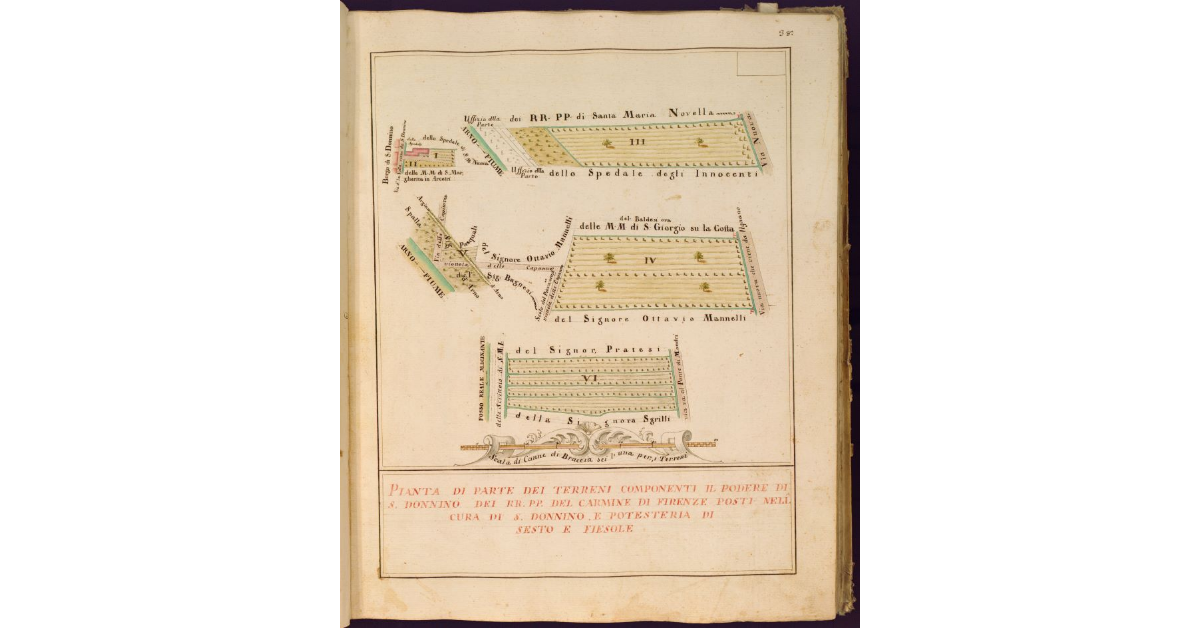 Uffizio della
Parte
dei RR. PP. di Santa Maria Novella
Via Nuova
ARNO FIUME
III
Uffizio della
Parte
dello Spedale degli Innocenti
Borgo di S. Donnino
dello Spedale
I
II
delle M. M. di S. Mar
gherita in Arcetri
ARNO FIUME
del Signore Ottavio Mannelli
Sig. Bagnesi
d'Arno
del Balden ora
delle M. M di S. Giorgio su la Costa
IV
del Signore Ottavio Mannelli
FOSSO REALE MACINANTE
dello Scrittoio di S. M. I.
del Signor Pratesi
VI
della Signora Sgrilli
Scala di Canne di Braccia sei l'una per i Terreni
PIANTA DI PARTE DEI TERRENI COMPONENTI IL PODERE DI
S. DONNINO DEI RR. PP. DEL CARMINE DI FIRENZE POSTI NELL
CURA DI S. DONNINO, E POTESTERIA DI
SESTO E FIESOLE